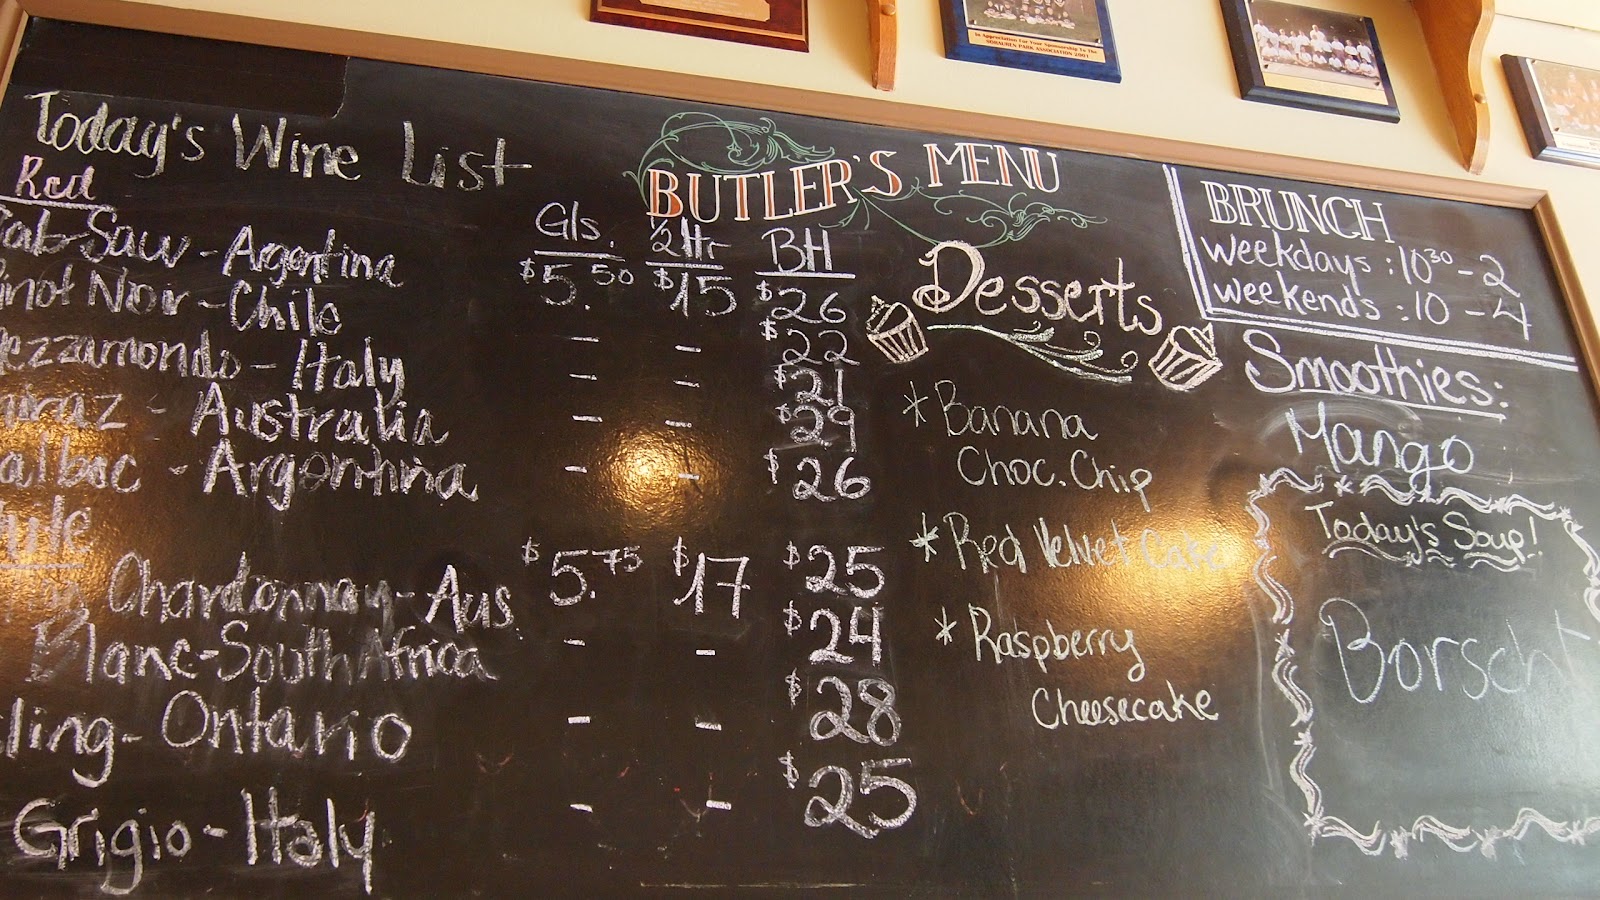 In Appreciation For Your Sponsorship To The
MOHAUREN PARK ASSOCIATION 2001
BUTLER'S MENU
Today's Wine List
Red
Gls. 1/2 ltr BH
Cab-Sauv - Argentina $5.50 $15 $26
Pinot Noir - Chile - - $22
Mezzamondo - Italy - - $21
Shiraz - Australia - - $29
Malbec - Argentina - - $26
White
Chardonnay - Aus $5.75 $17 $25
Blanc - South Africa - - $24
ling - Ontario - - $28
Grigio - Italy - - $25
Desserts
* Banana
Choc. Chip
* Red Velvet Cake
* Raspberry
Cheesecake
BRUNCH
weekdays : 10 30 - 2
weekends : 10 - 4
Smoothies:
Mango
Today's Soup!
Borscht